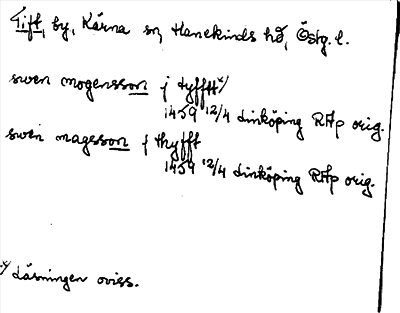 Tift, by, Kärna sn, Hanekinds hd, Östg. l.
swen mogensson j tyfft x)
1459 12/4 Linköping RAp orig.
swen magsson j thyfft
1459 12/4 Linköping RAp orig.
x) Läsningen oviss.